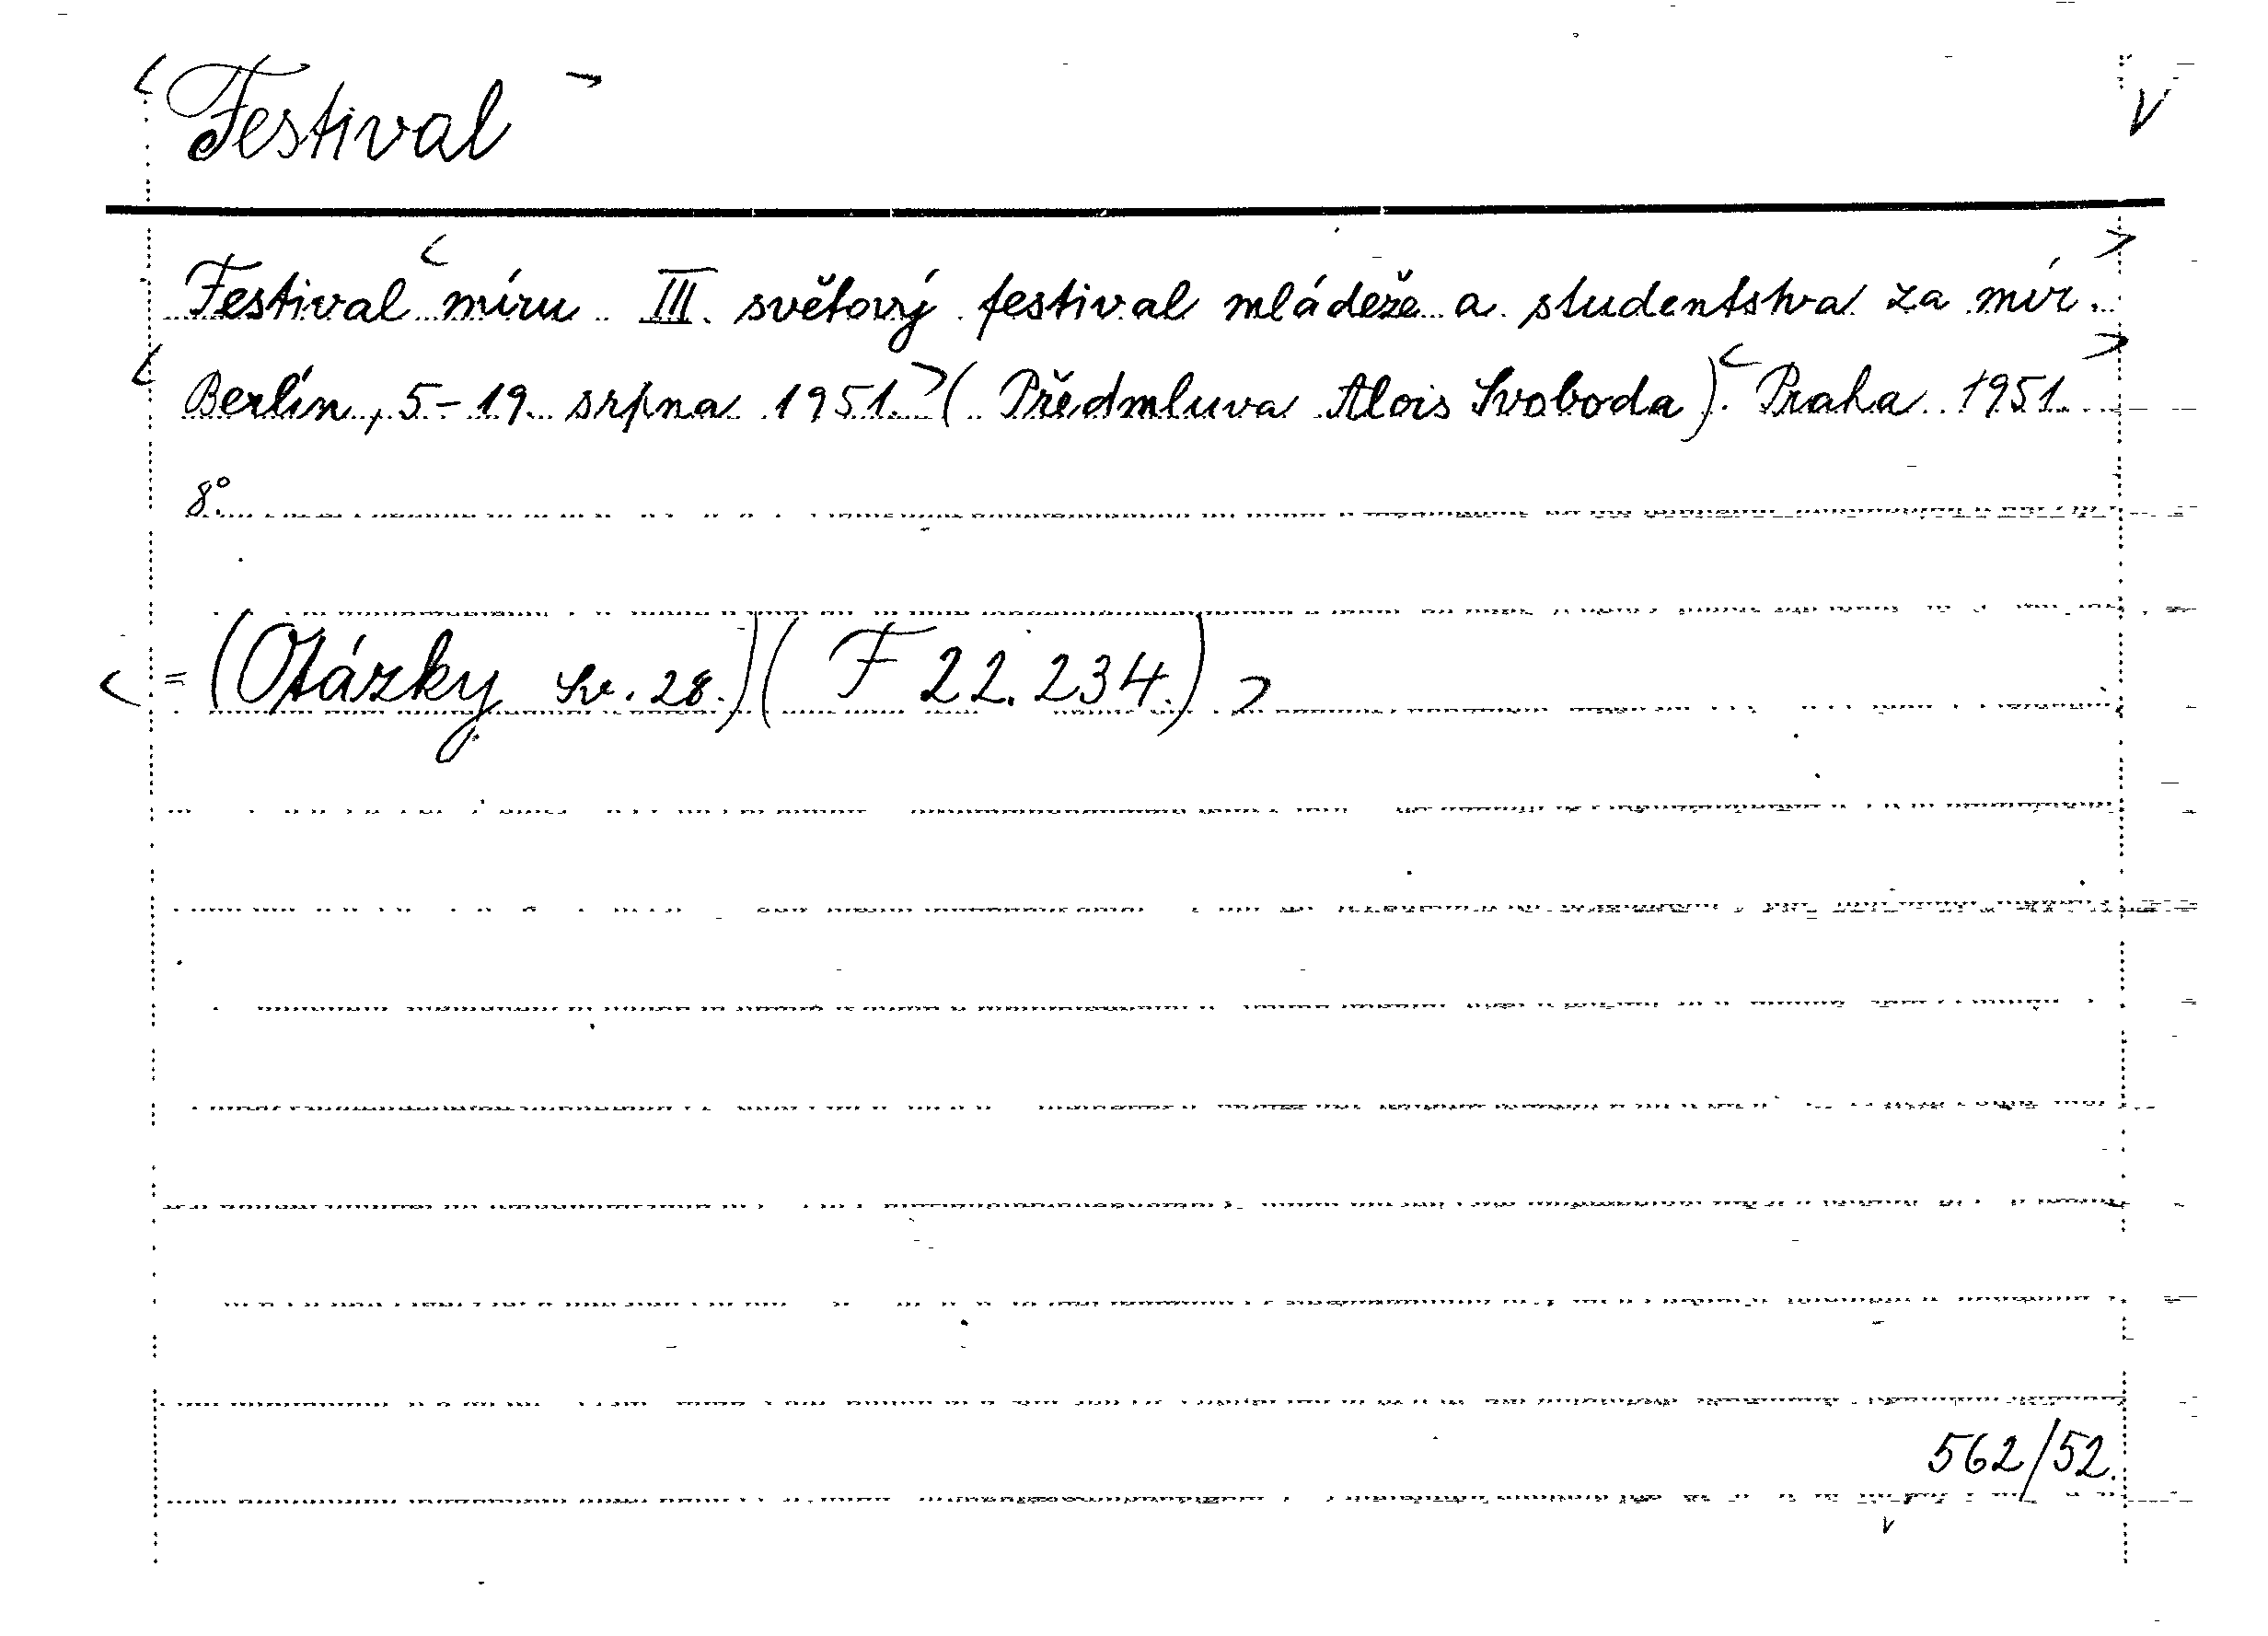 Festival V
Festival míru III. světový festival mládeže a studentstva za mír.
Berlín, 5-19 srpna 1951. (Předmluva Alois Svoboda). Praha 1951.
8°.
= (Otázky sv. 28.) (F 22.234.)
562/52.